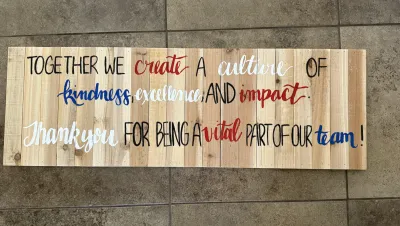 TOGETHER WE create A culture OF
kindness, excellence, AND impact.
Thank you FOR BEING A vital PART OF OUR team!